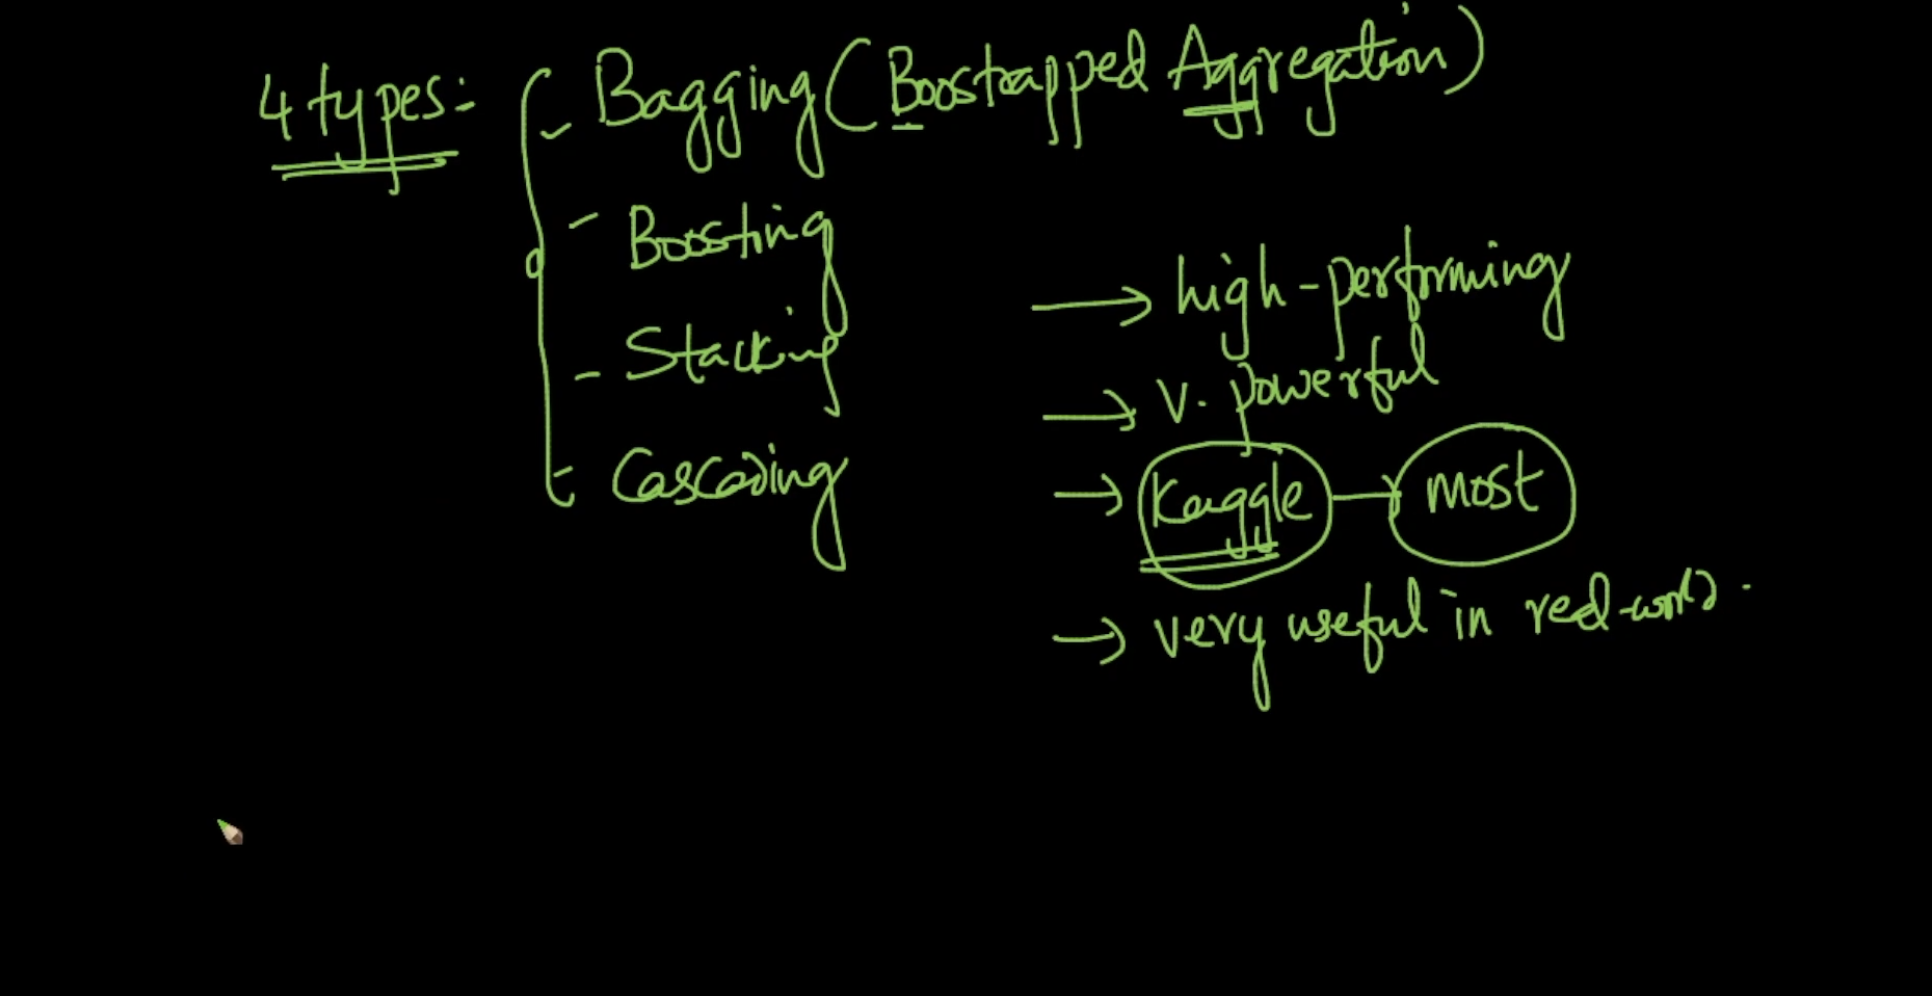 4 types:
- Bagging (Boostrapped Aggregation)
- Boosting
- Stacking
- Cascading
→ high-performing
→ v. powerful
→ Kaggle → most
→ very useful in real-world.